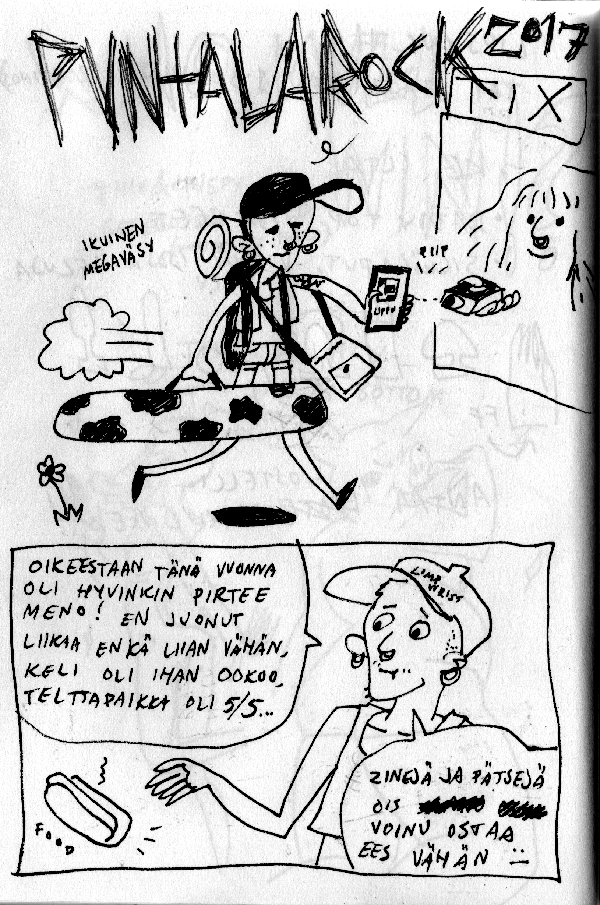 PUNTALAROCK 2017
TIX
IKUINEN
MEGAVÄSY
PIIP
LIPPU
OIKEESTAAN TÄNÄ VUONNA
OLI HYVINKIN PIRTEE
MENO! EN JUONUT
LIIKAA ENKÄ LIIAN VÄHÄN,
KELI OLI IHAN OOKOO,
TELTTAPAIKKA OLI 5/5...
LIMP
WRIST
FOOD
ZINEJÄ JA PÄTSEJÄ
OIS
VOINU OSTAA
EES VÄHÄN :|